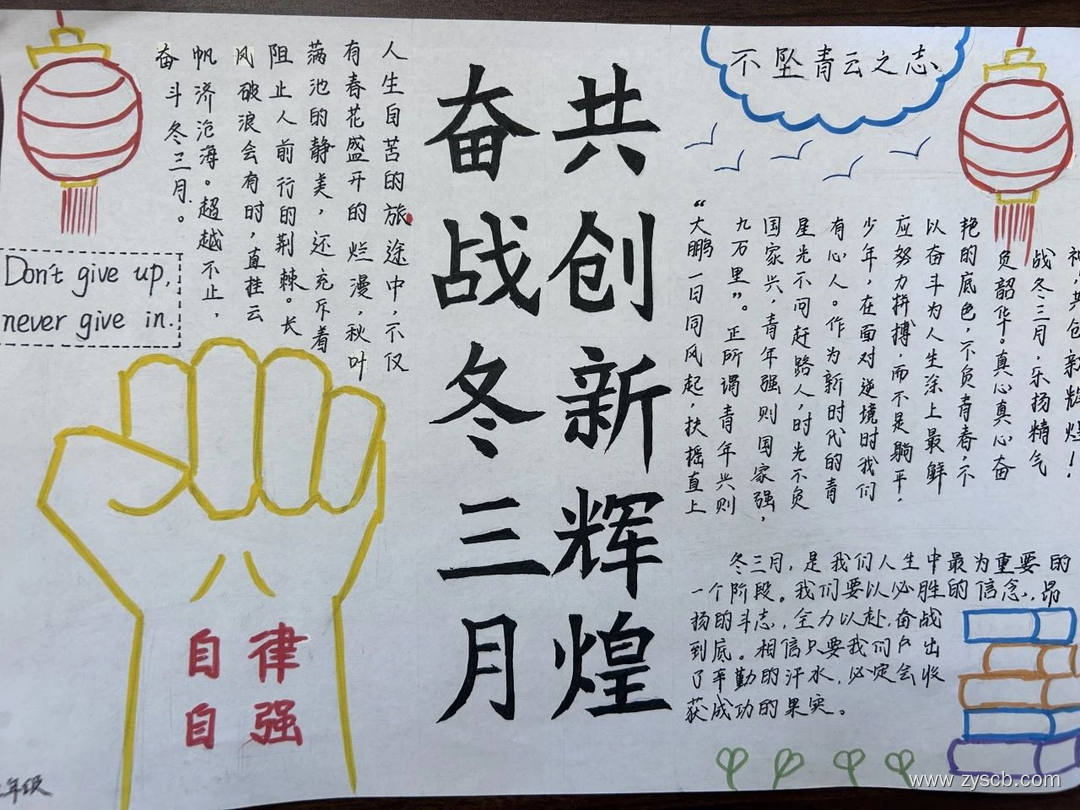 人生自苦的旅途中,不仅
有春花盛开的烂漫,秋叶
满池的静美,还充斥着
阻止人前行的荆棘。长
风破浪会有时,直挂云
帆济沧海。超越不止,
奋斗冬三月。
Don't give up,
never give in.
自律
自强
年级
奋战冬三月
共创新辉煌
不坠青云之志
“大鹏一日同风起,扶摇直上
九万里”。正所谓青年兴则
国家兴,青年强则国家强,
星光不问赶路人,时光不负
有心人。作为新时代的青
少年,在面对逆境时我们
应努力拼搏,而不是躺平!
以奋斗为人生涂上最鲜
艳的底色,不负青春,不
负韶华。真心真心奋
战冬三月,乐扬精气
神,共创新辉煌!
冬三月,是我们人生中最为重要的
一个阶段。我们要以必胜的信念,昂
扬的斗志,全力以赴,奋战
到底。相信只要我们户出
了辛勤的汗水,必定会收
获成功的果实。
www.zyscb.com